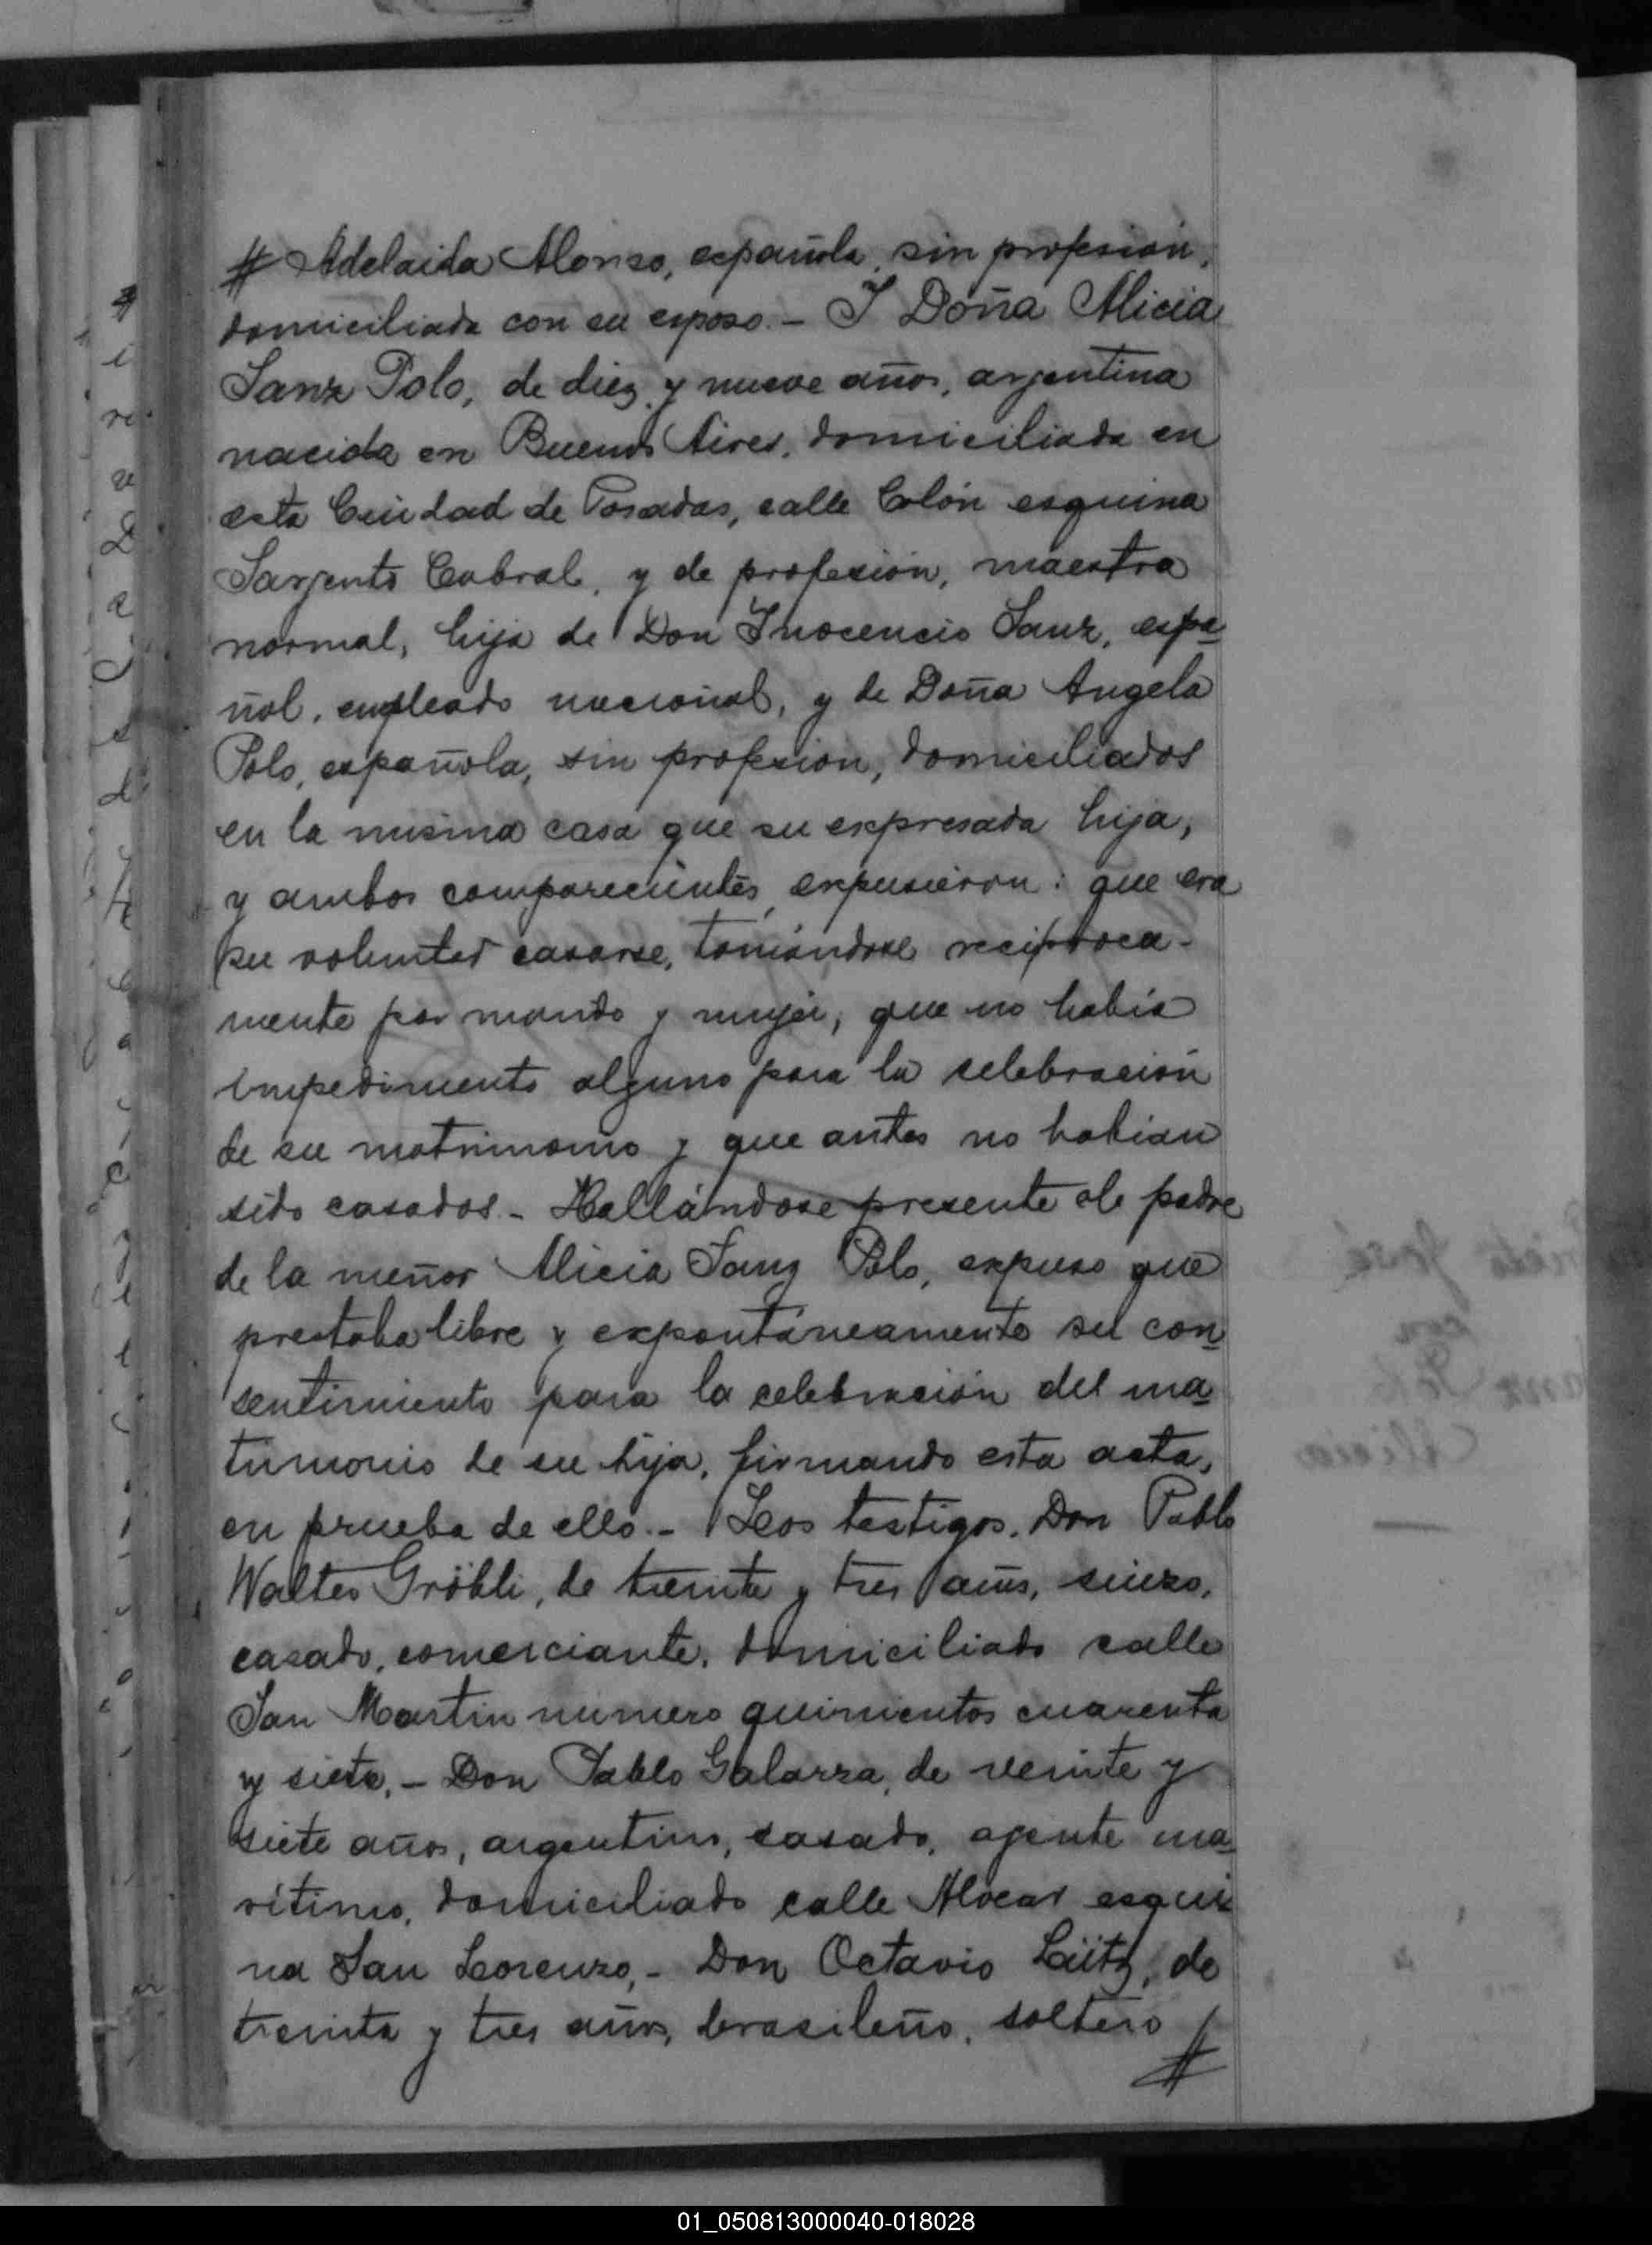 # Adelaida Alonso, española, sin profesión,
domiciliada con su esposo. - I Doña Alicia
Sanz Polo, de diez y nueve años, argentina
nacida en Buenos Aires, domiciliada en
esta Ciudad de Posadas, calle Colón esquina
Sarjento Cabral, y de profesión, maestra
normal, hija de Don Inocencio Sanz, espa
ñol, empleado nacional, y de Doña Angela
Polo, española, sin profesion, domiciliados
en la misma casa que su expresada hija,
y ambos comparecientes, expusieron: que era
su voluntad casarse, tomándose reciproca-
mente por marido y mujer, que no había
impedimento alguno para la selebración
de su matrimonio y que antes no habian
sido casados. - Hallándose presente el padre
de la menor Alicia Sanz Polo, expuso que
prestaba libre y expontáneamente su con
sentimiento para la celebración del ma
trimonio de su hija, firmando esta acta,
en prueba de ello. - Los testigos, Don Pablo
Walter Gröbli, de treinta y tres años, suizo,
casado, comerciante, domiciliado calle
San Martin numero quinientos cuarenta
y siete, - Don Pablo Galarza, de veinte y
siete años, argentino, casado, agente ma
rítimo, domiciliado calle Alvear esqui
na San Lorenzo, - Don Octavio Lütz, de
treinta y tres años, brasileño, soltero
#
01_050813000040-018028